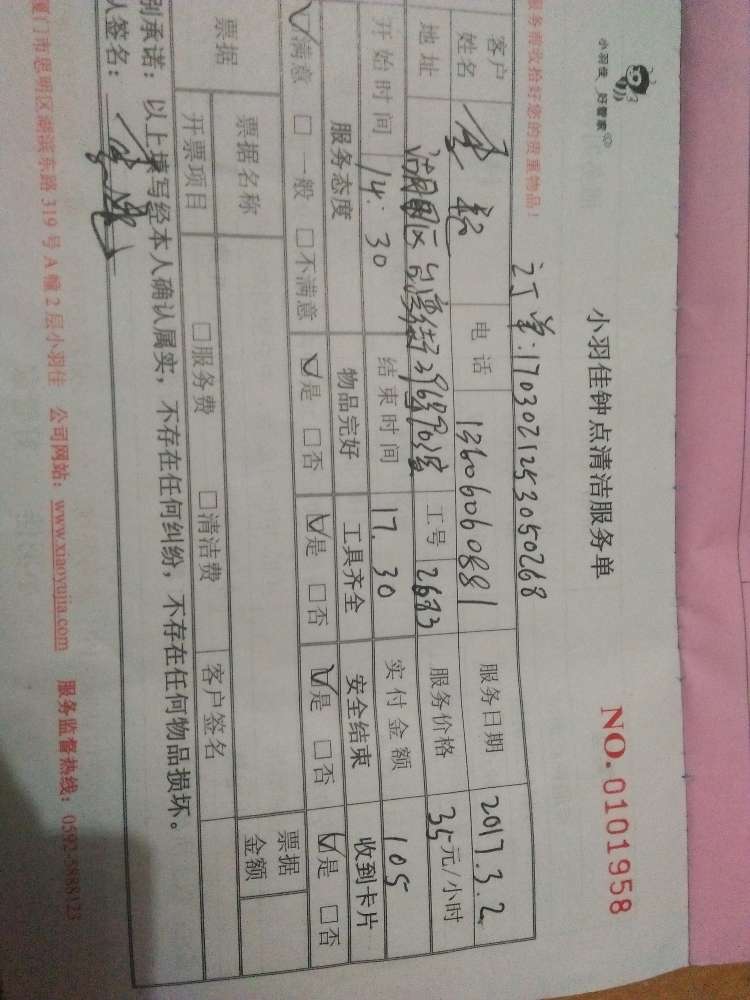 小羽佳 好管家
小羽佳钟点清洁服务单
NO. 0101958
服务前收拾好您的贵重物品！
订单：1703021253050268
客户姓名 电话 13606060881 服务日期 2017.3.2
地址 工号 2683 服务价格 35元/小时
开始时间 14:30 结束时间 17.30 实付金额 105
服务态度 物品完好 工具齐全 安全结束 收到卡片
☑满意 □一般 □不满意 ☑是 □否 ☑是 □否 ☑是 □否 ☑是 □否
票据 票据名称 票据金额
开票项目 □服务费 □清洁费 客户签名
别承诺：以上填写经本人确认属实，不存在任何纠纷，不存在任何物品损坏。
人签名：
厦门市思明区湖滨东路319号A幢2层小羽佳 公司网站：www.xiaoyujia.com 服务监督热线：0592-5888123